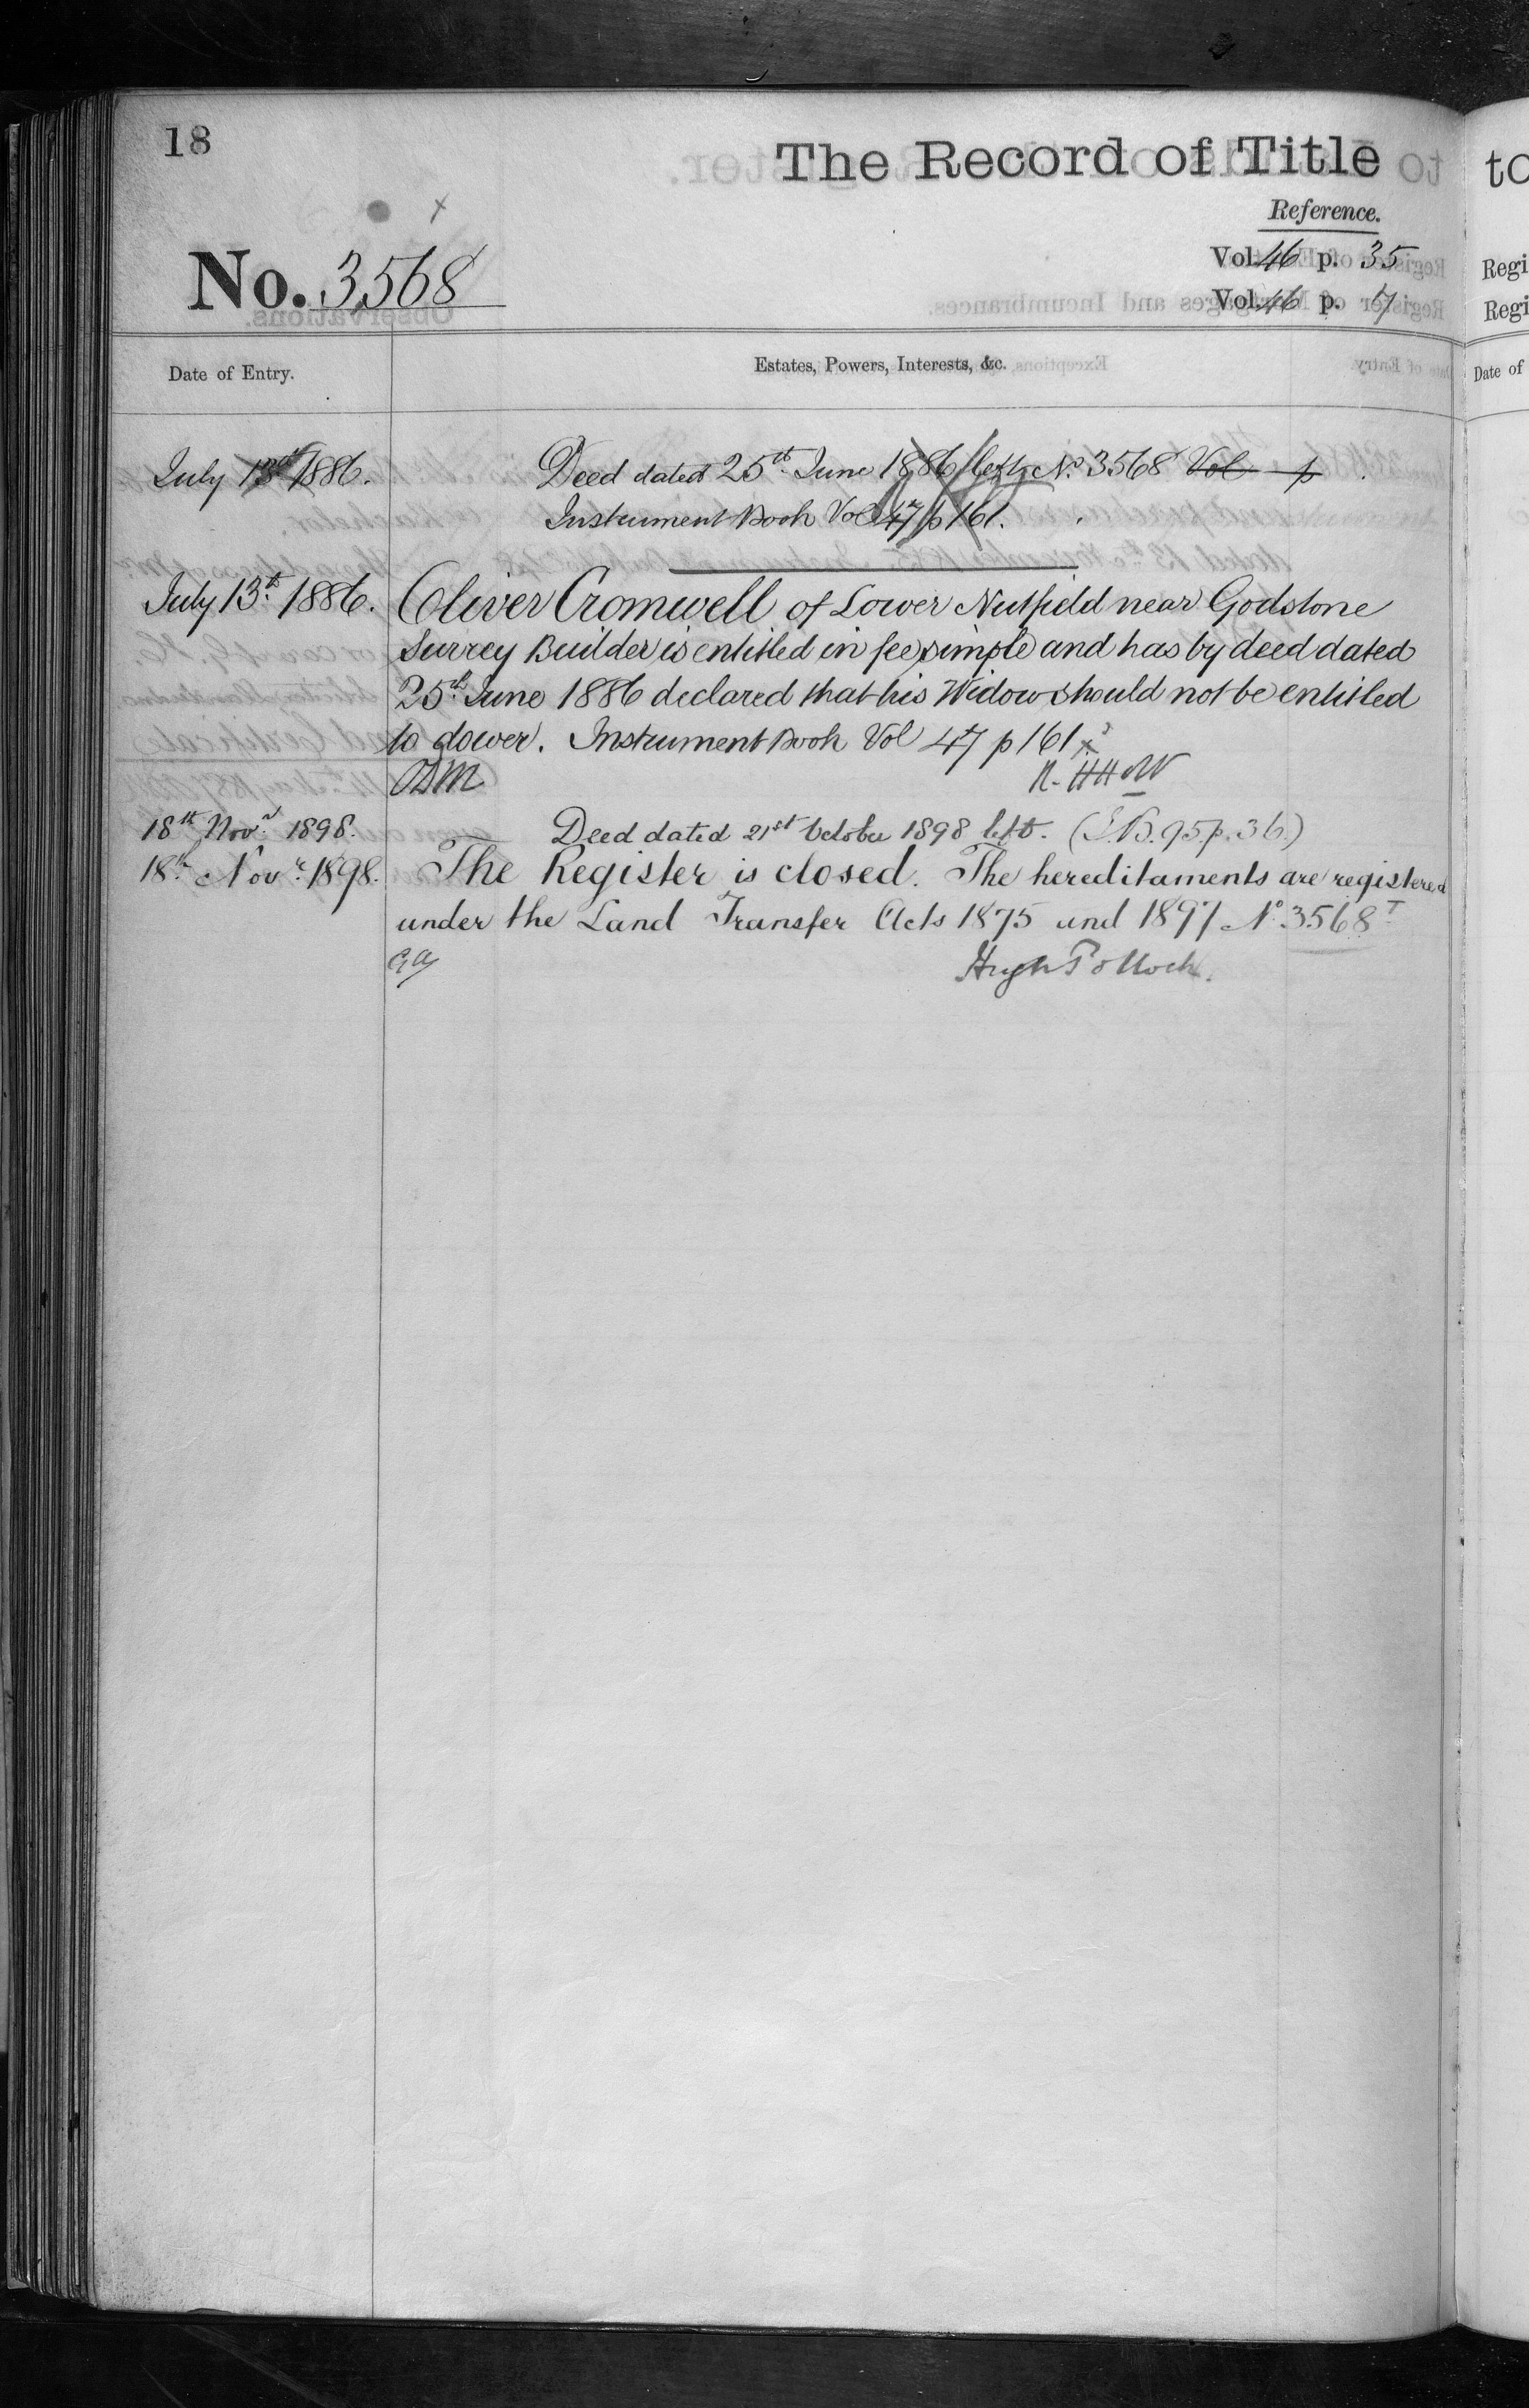 18
The Record of Title
Reference.
No. 3568
Vol. 46 p. 35
Vol. 46 p. 7
Date of Entry.
Estates, Powers, Interests, &c.
July 13th 1886.
Deed dated 25th June 1886 left No. 3568 Vol p
Instrument Book Vol 47 p 161.
July 13th 1886.
Oliver Cromwell of Lower Nutfield near Godstone
Surrey Builder is entitled in fee simple and has by deed dated
25th June 1886 declared that his Widow should not be entitled
to dower. Instrument Book Vol 47 p 161 x
18th Novr 1898.
Deed dated 21st October 1898 left. (I.B. 95 p. 36.)
18th Novr. 1898.
The Register is closed. The hereditaments are registered
under the Land Transfer Acts 1875 and 1897 No. 3568 T
Hugh Pollock.
to
Regi
Regi
Date of